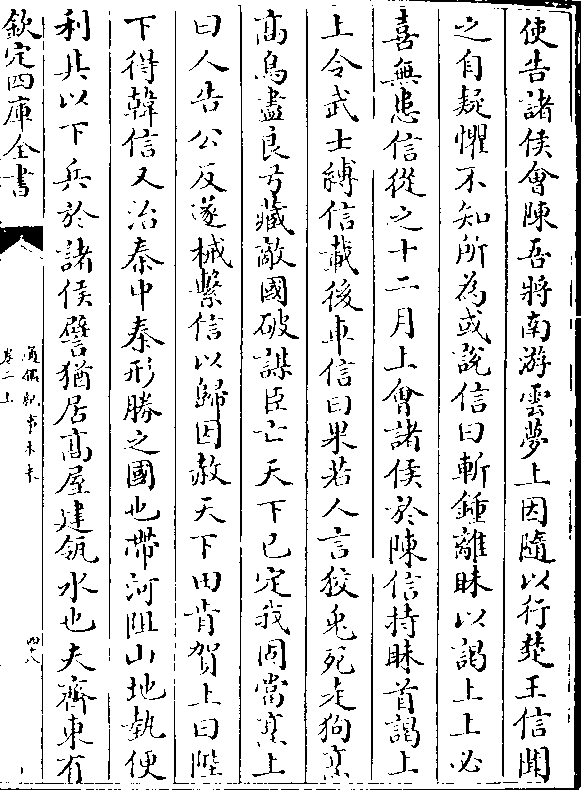 使告諸侯會陳吾將南游雲夢上因隨以行楚王信聞
之自疑懼不知所為或說信曰斬鍾離眜以謁上上必
喜無患信從之十二月上會諸侯於陳信持眜首謁上
上令武士縛信載後車信曰果若人言狡兎死走狗烹
髙鳥盡良弓藏敵國破謀臣亡天下已定我固當烹上
曰人告公反遂械繫信以歸因赦天下田肯賀上曰陛
下得韓信又治秦中秦形勝之國也帶河阻山地埶便
利其以下兵於諸侯譬猶居髙屋建瓴水也夫齊東有
欽定四庫全書
通鑑紀事本末
卷二上
四十八